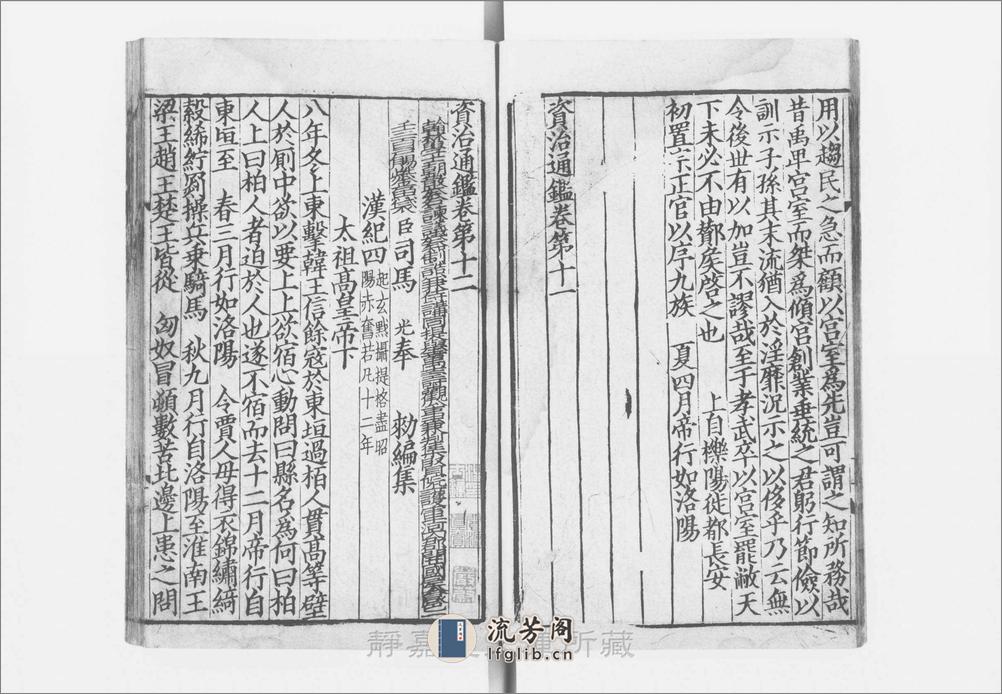 用以趨民之急而顧以宮室爲先豈可謂之知所務哉
昔禹卑宮室而桀爲傾宮創業垂統之君躬行節儉以
訓示子孫其末流猶入於淫靡況示之以侈乎乃云無
令後世有以加豈不謬哉至于孝武卒以宮室罷敝天
下未必不由酇侯啓之也　上自櫟陽徙都長安
初置宗正官以序九族　夏四月帝行如洛陽
資治通鑑卷第十一
資治通鑑卷第十二
臣司馬　光奉　勑編集
漢紀四 起玄黓攝提格盡昭
陽赤奮若凡十二年
太祖高皇帝下
八年冬上東擊韓王信餘寇於東垣過栢人貫高等壁
人於廁中欲以要上上欲宿心動問曰縣名為何曰柏
人上曰柏人者迫於人也遂不宿而去十二月帝行自
東垣至　春三月行如洛陽　令賈人毋得衣錦繡綺
縠絺紵罽操兵乗騎馬　秋九月行自洛陽至淮南王
梁王趙王楚王皆從　匈奴冒頓數苦北邊上患之問
流芳阁
lfglib.cn